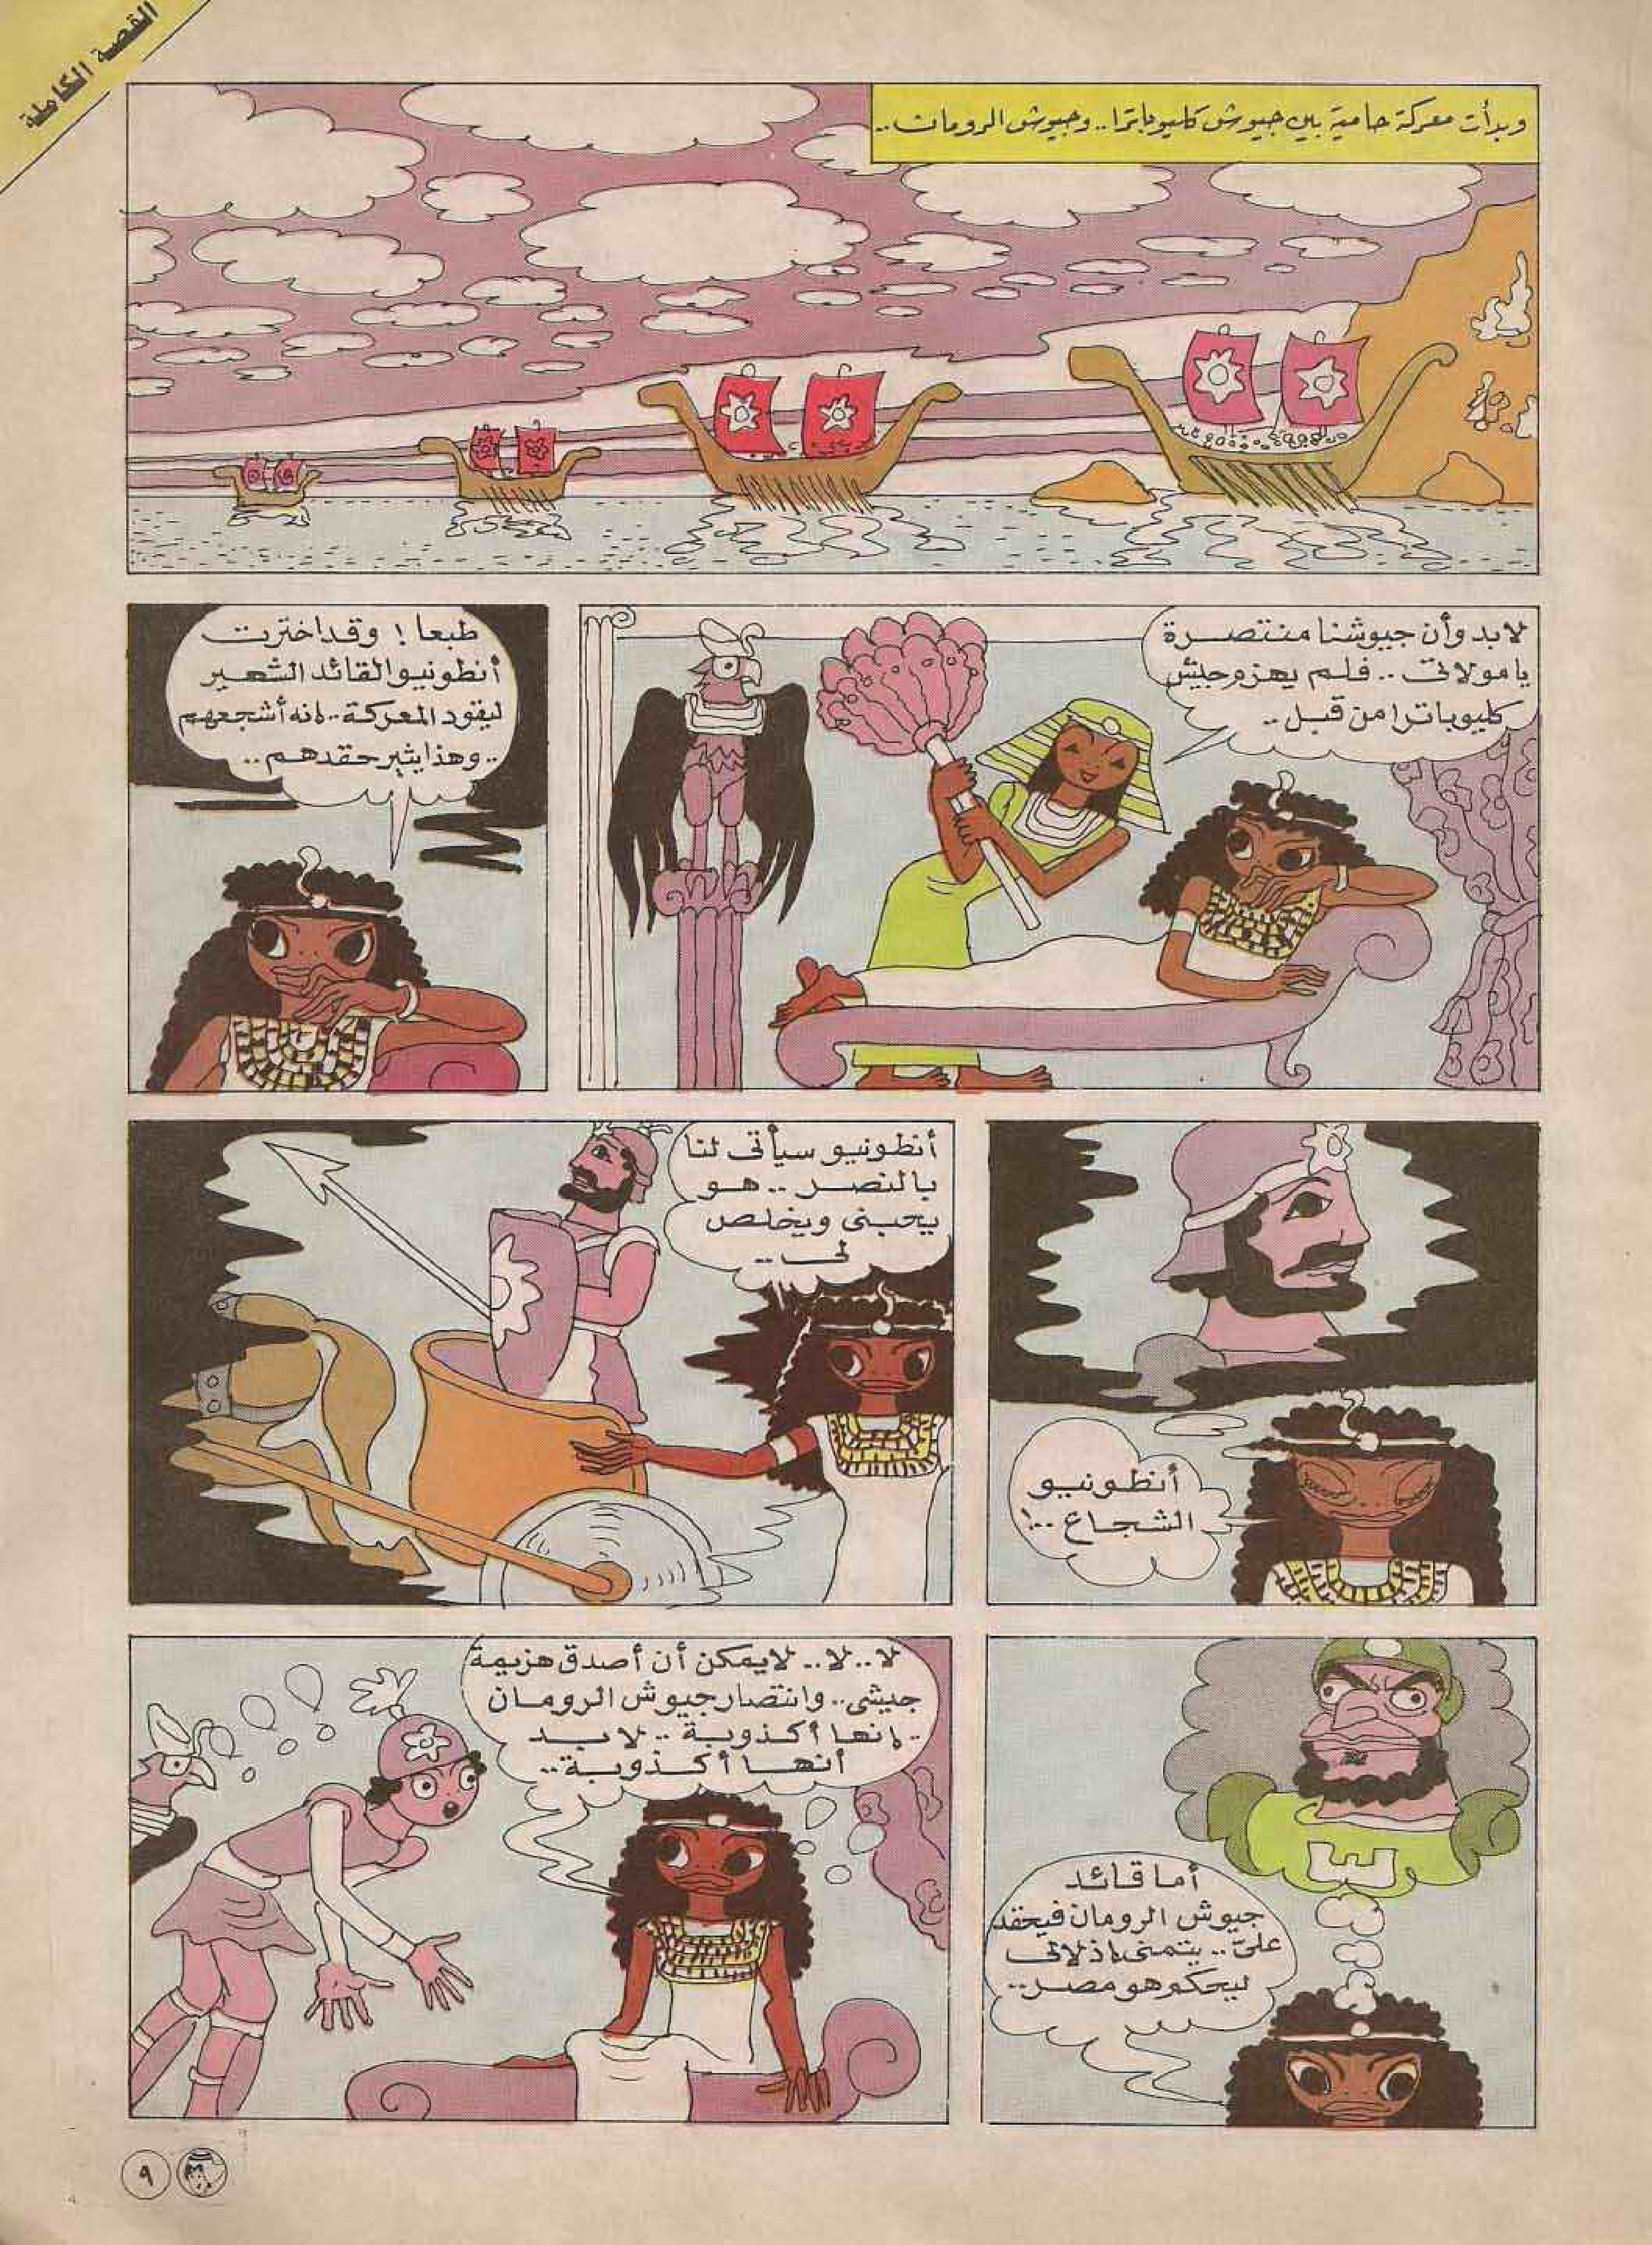 القصة الكاملة
وبدأت معركة حامية بين جيوش كليوباترا.. وجيوش الرومان..
لابد وأن جيوشنا منتصرة
يا مولاتى .. فلم يهزم جيش
كليوباترا من قبل ..
طبعا ! وقد اخترت
أنطونيو القائد الشهير
ليقود المعركة.. إنه أشجعهم
.. وهذا يثير حقدهم ..
أنطونيو
الشجاع ..!
أنطونيو سيأتى لنا
بالنصر .. هو
يحبنى ويخلص
لى ..
أما قائد
جيوش الرومان فيحقد
علىّ .. يتمنى إذلالى
ليحكم هو مصر ..
لا .. لا .. لايمكن أن أصدق هزيمة
جيشى .. وانتصار جيوش الرومان
.. إنها أكذوبة .. لابد
أنها أكذوبة ..
٩